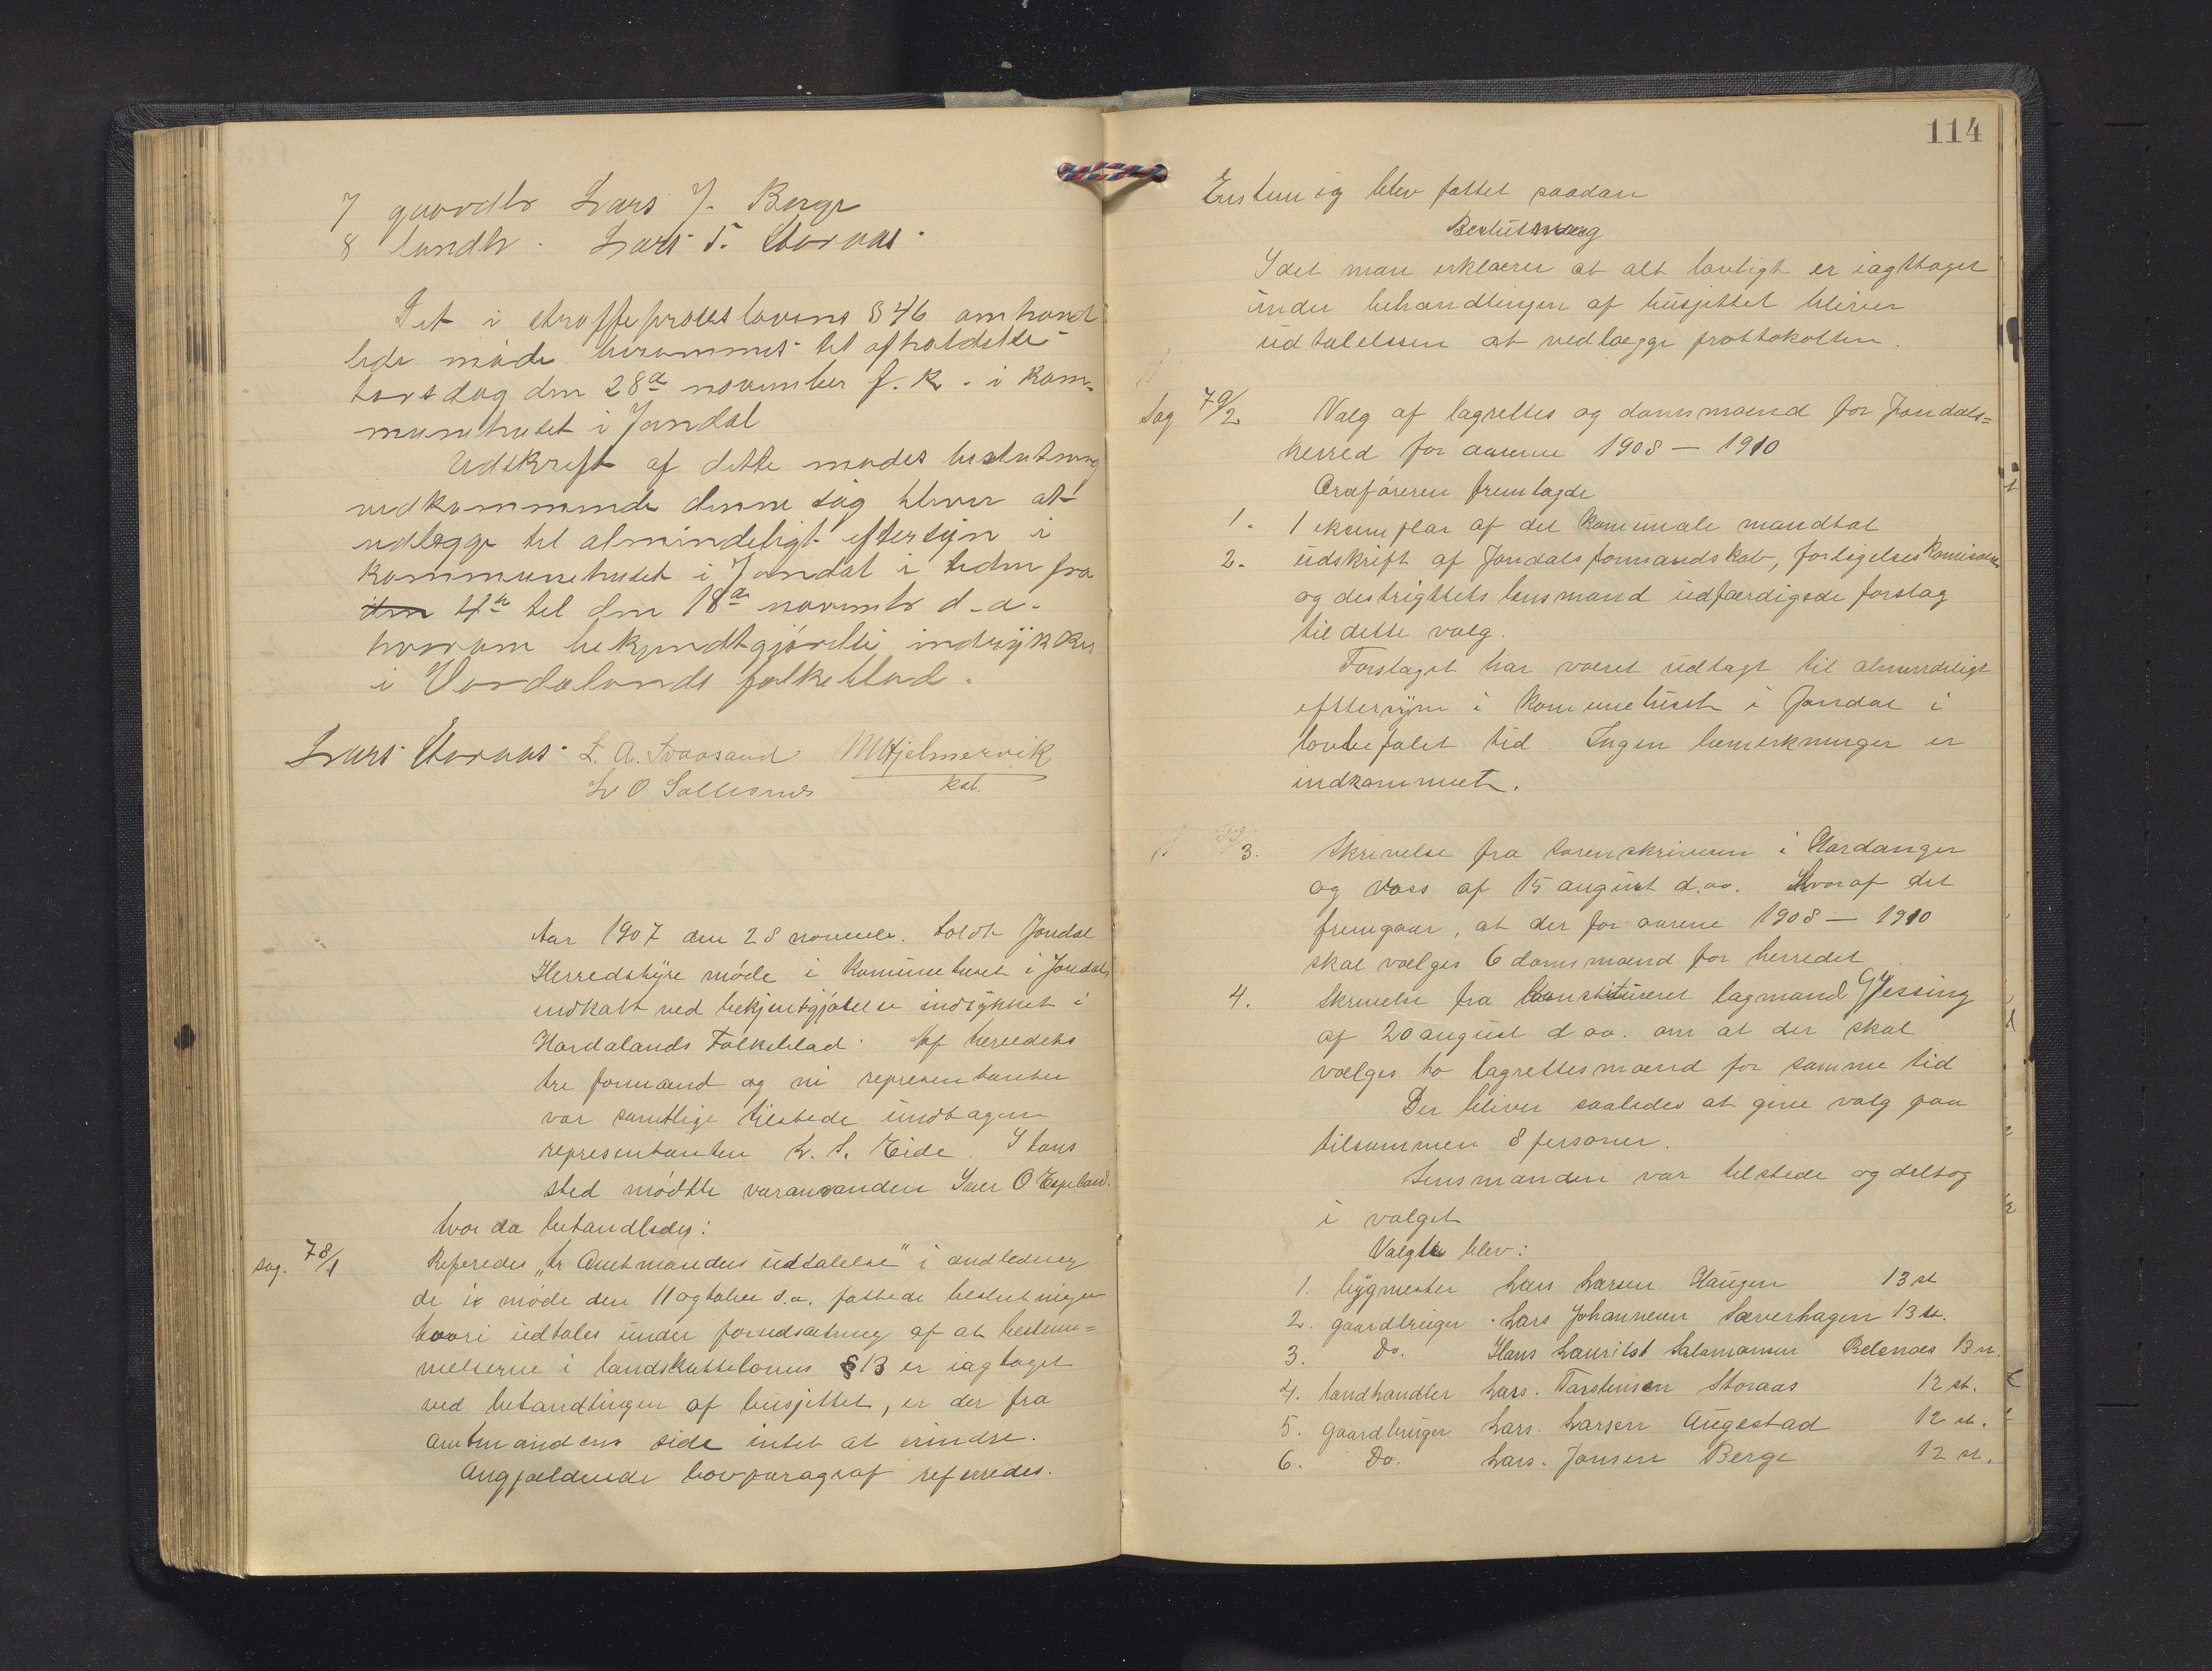 7 gaardbr Lars J. Berge
8 landh. Lars T. Storaas.
Det i straffeproceslovens § 46 omhand
lede møde berammes til afholdelse
torsdag den 28de november f. k. i kom-
munehuset i Jondal
Udskrift af dette mødes beslutning
vedkommende denne sag bliver at
udlægge til almindeligt eftersyn i
kommunehuset i Jondal i tiden fra
den 4de til den 18de novembr d. a.
hvorom bekjendtgjørelse indrykkes
i Hordalands folkeblad.
Lars Storaas. L. A. Svaasand M Hjelmervik
L O Sollesnes kst.
Aar 1907 den 28 novemb. holdt Jondal
Herredstyre møde i Komunehuset i Jondal
indkalt ved bekjentgjørelse indrykket i
Hordalands Folkeblad. Af herredets
tre formænd og ni representanter
var samtlige tilstede undtagen
representanten L. S. Eide. I hans
sted mødte varamanden Iver O Espeland.
hvor da behandledes:
sag. 78/1 Referedes "hr Amtmandens udtalelse" i andledning
de i møde den 11 ogtober d.a. fattede beslutninger
hvori udtales under forudsætning af at bestem=
melserne i landskattelovens § 13 er iagtaget
ved behandlingen af busjettet, er der fra
amtmandens side intet at erindre.
Angjældende lovparagraf referredes.
114
Enstemig blev fattet saadan
Beslutning
Idet man erklærer at alt lovligt er iagttaget
under behandlingen af busjettet bliver
udtalelsen at vedlægge prottokollen.
Sag 79/2 Valg af lagrettes og domsmænd for Jondals=
herred for aarene 1908 — 1910
Ordføreren fremlagde
1. 1 eksemplar af det komunale mandtal
2. udskrift af Jondals formandskab, forligelseskomisions
og destrigttets lensmand udfærdigede forslag
til dette valg.
Forslaget har været udlagt til almindeligt
eftersyn i Komunehuset i Jondal i
lovbefalet tid. Ingen bemerkninger er
indkommet.
3. Skrivelse fra sorenskriveren i Hardanger
og Voss af 15 august d.aa. Hvoraf det
fremgaar, at der for aarene 1908 — 1910
skal vælges 6 domsmænd for herredet
4. Skrivelse fra konstitueret lagmand Gjessing
af 20 august d aa. om at der skal
vælges to lagrettesmænd for samme tid
Der bliver saaledes at give valg paa
tilsammen 8 personer.
Lensmanden var tilstede og deltog
i valget
Valgte blev:
1. bygmester Lars Larsen Haugen 13 st
2. gaardbruger Lars Johannesen Sæverhagen 13 st.
3. Do. Hans Lauritst Salamonsen Belsnæs 13 st.
4. landhandler Lars. Torsteinsen Storaas 12 st.
5. gaardbruger Lars. Larsen Augestad 12 st.
6. Do. Lars. Jonsen Berge 12 st.